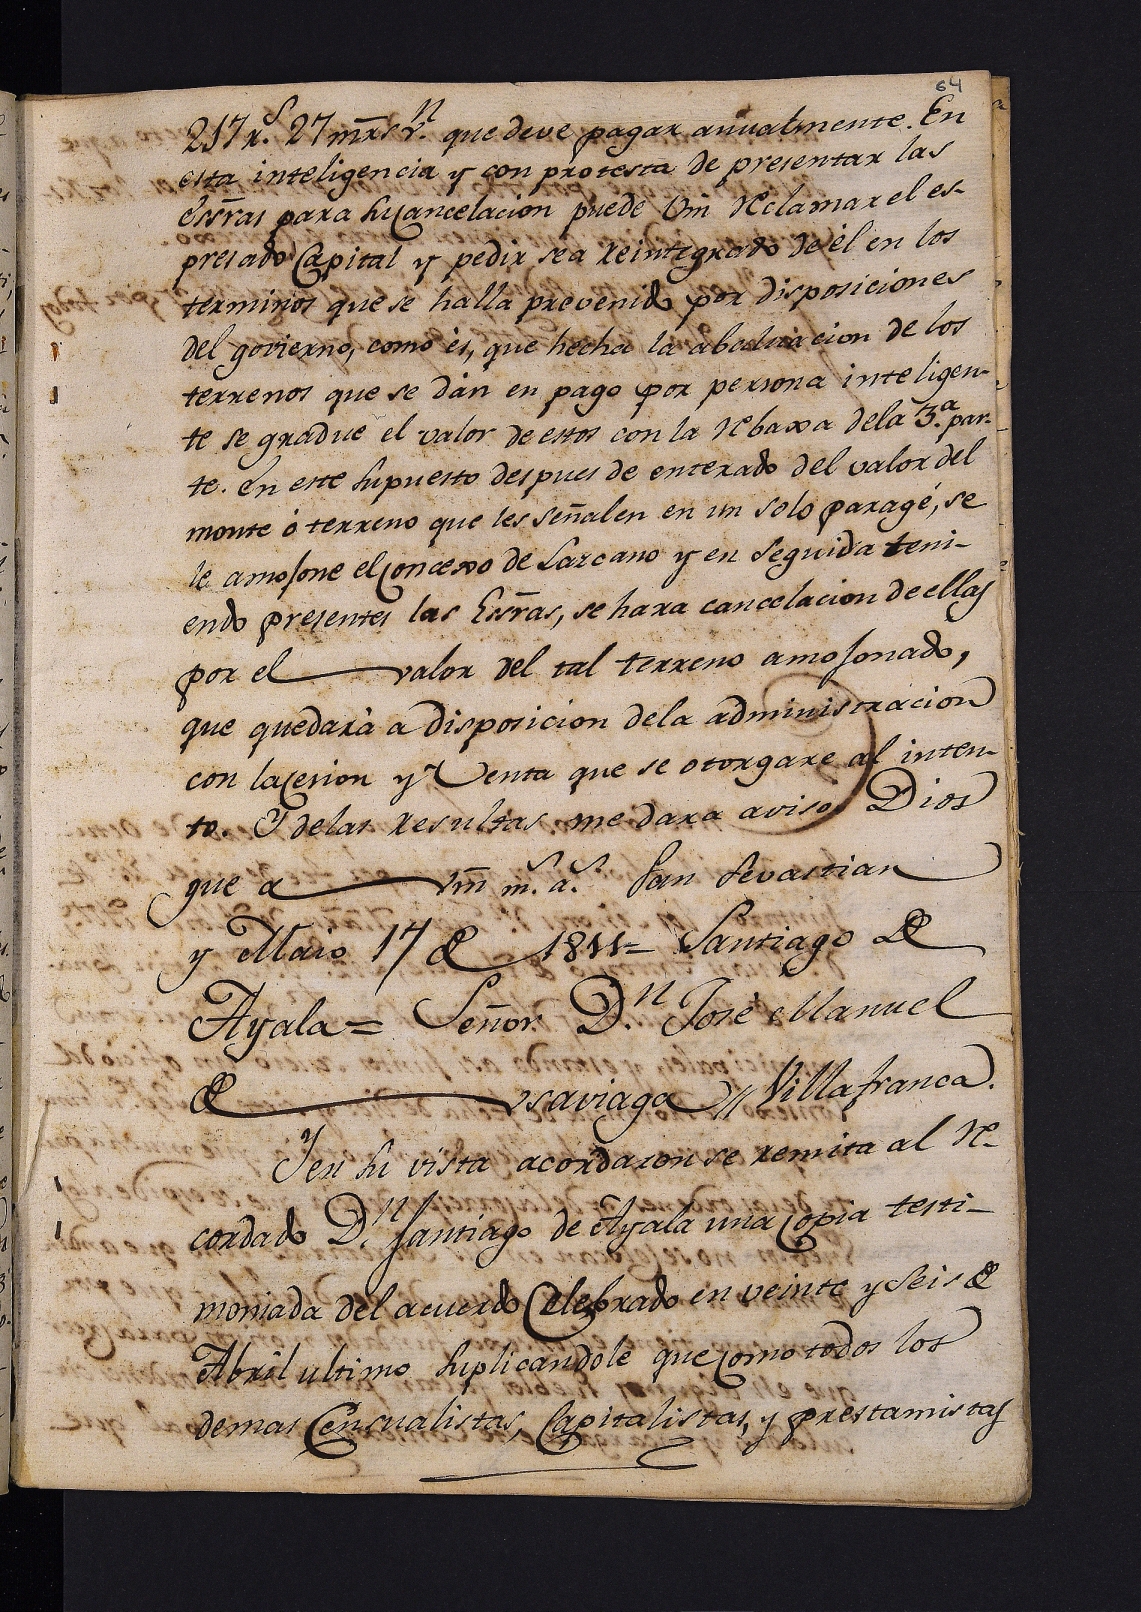 64
217 r.s 27 mrs v.n que deve pagar anualmente. En
esta inteligencia y con protesta de presentar las
essras para su cancelacion puede Vm reclamar el es-
presado Capital y pedir sea reintegrado de él en los
terminos que se halla prevenido por disposiciones
del govierno, como és, que hecha la abaluacion de los
terrenos que se dán en pago por persona inteligen-
te se gradue el valor de estos con la rebaxa dela 3.a par-
te. En este supuesto despues de enterado del valor del
monte ó terreno que les señalen en un solo paragé, se
le amojone el Concexo de Lazcano y en seguida teni-
endo presentes las Essras, se hara cancelacion de ellas
por el valor del tal terreno amojonado,
que quedará a disposicion dela administracion
con la Cesion y Venta que se otorgare al inten-
to. Y delas resultas me dara aviso Dios
gue a Vm m.s a.s San Sevastian
y Maio 17 de 1811= Santiago de
Ayala= Señor D.n José Manuel
de Ysaviaga // Villafranca.
Y en su vista acordaron se remita al re-
cordado D.n Santiago de Ayala una Copia testi-
moniada del acuerdo Celebrado en veinte y seis de
Abril ultimo suplicandole que como todos los
demas Censualistas, Capitalistas, y prestamistas